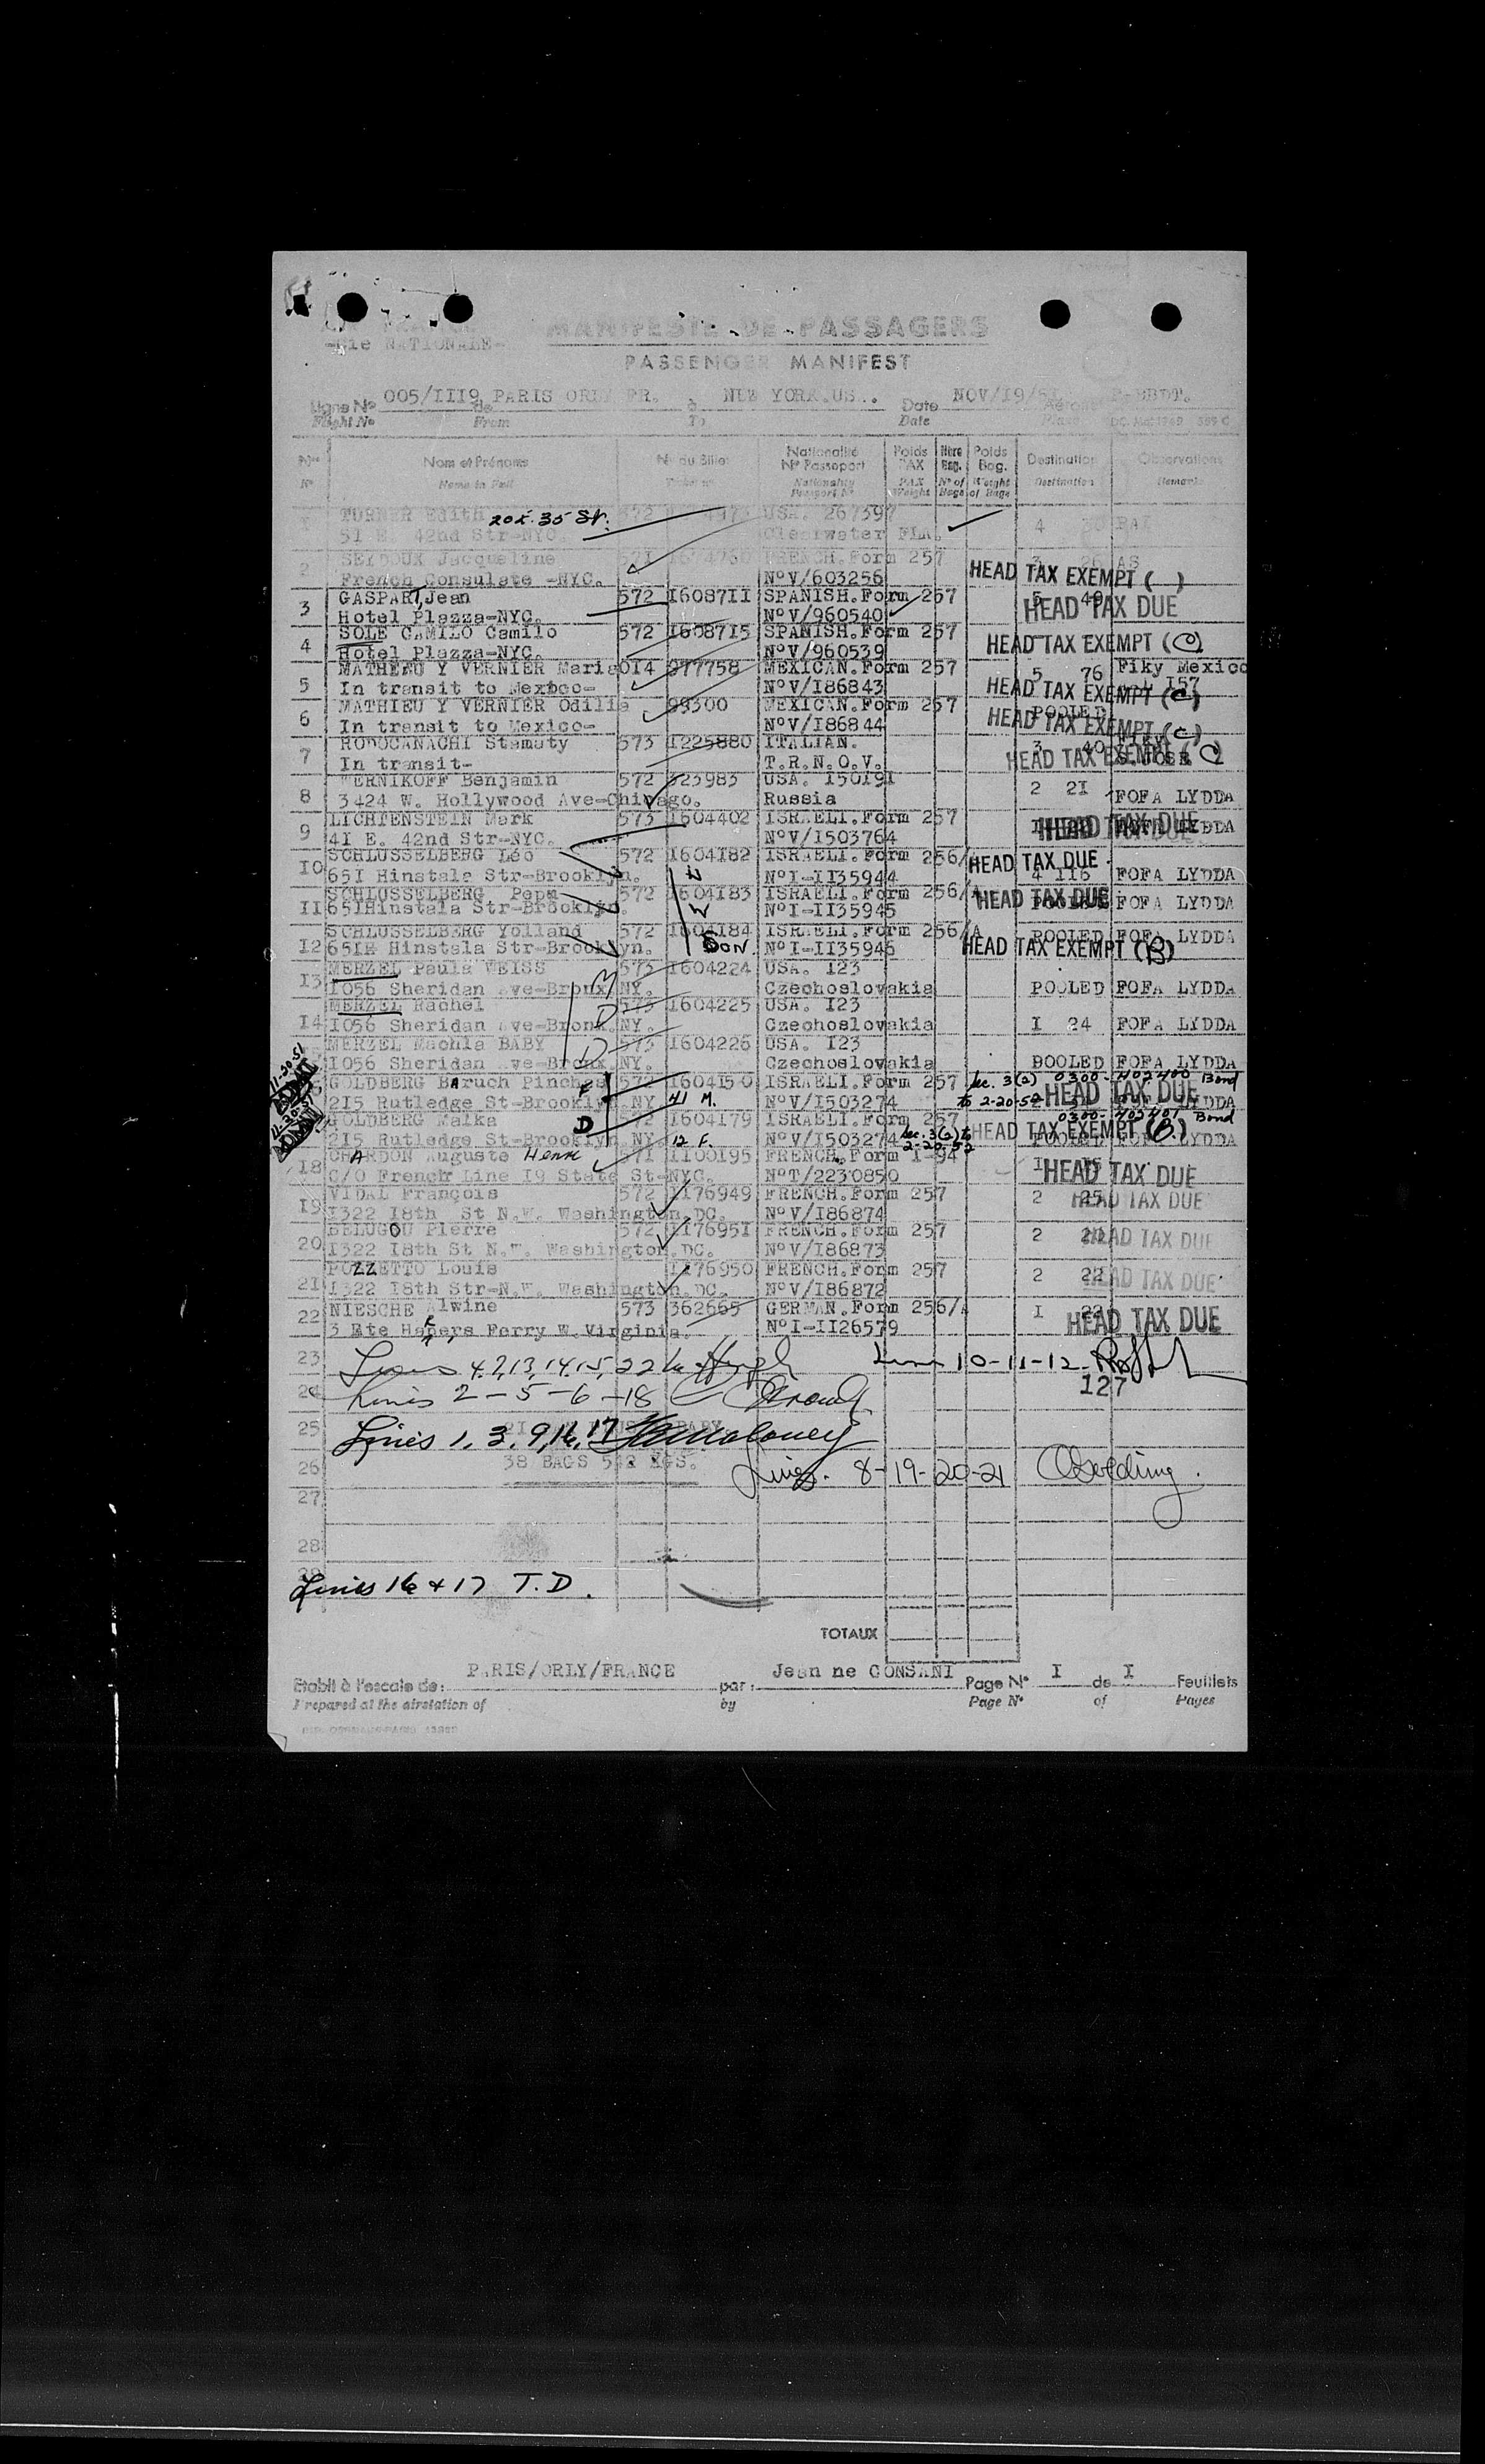 -Cie NATIONALE-
MANIFESTE DE PASSAGERS
PASSENGER MANIFEST
Ligne No 005/III9 de PARIS ORLY FR. à NEW YORK.US.. Date NOV/I9/5I
Flight No From To Date
Nos Nom et Prénoms No du Billet Nationalité No Passeport Poids PAX Nbre Bag. Poids Bag. Destination Observations
No Name in Full Ticket no Nationality Passport No PAX Weight No of Bags Weight of Bags Destination Remarks
I TURNER Edith 20 E. 35 St. 572 USA. 267597 4
5I E. 42nd Str-NYC. Clearwater FLA.
2 SEYDOUX Jacqueline 57I FRENCH.Form 257 3 26 AS
French Consulate -NYC. NoV/603256 HEAD TAX EXEMPT ( )
3 GASPART Jean 572 I6087II SPANISH.Form 257 5
Hotel Plazza-NYC. NoV/960540 HEAD TAX DUE
4 SOLE CAMILO Camilo 572 I6087I5 SPANISH.Form 257 HEAD TAX EXEMPT (C)
Hotel Plazza-NYC. NoV/960539
5 MATHIEU Y VERNIER Maria 0I4 977758 MEXICAN.Form 257 5 76 Fiky Mexico
In transit to Mexico- NoV/I86843 HEAD TAX EXEMPT (C) I57
6 MATHIEU Y VERNIER Odilia 99300 MEXICAN.Form 257 POOLED
In transit to Mexico- NoV/I86844 HEAD TAX EXEMPT (C)
7 RODOCANACHI Stamaty 573 I225880 ITALIAN. 3 40
In transit- T.R.N.O.V. HEAD TAX EXEMPT (C)
8 TERNIKOFF Benjamin 572 323983 USA. I50I9I 2 2I
3424 W. Hollywood Ave-Chicago. Russia FOFA LYDDA
9 LICHTENSTEIN Mark 573 I604402 ISRAELI.Form 257 HEAD TAX DUE
4I E. 42nd Str-NYC. NoV/I503764
I0 SCHLUSSELBERG Léo 572 I604I82 ISRAELI.Form 256/A HEAD TAX DUE
65I Hinstale Str-Brooklyn. NoI-II35944 4 II6 FOFA LYDDA
II SCHLUSSELBERG Pepa 572 I604I83 ISRAELI.Form 256/A HEAD TAX DUE
65IHinstala Str-Brooklyn. W NoI-II35945 FOFA LYDDA
I2 SCHLUSSELBERG Yolland 572 I604I84 ISRAELI.Form 256/A POOLED FOFA LYDDA
65I Hinstala Str-Brooklyn. Son NoI-II35946 HEAD TAX EXEMPT (B)
I3 MERZEL Paula WEISS M 573 I604224 USA. I23
I056 Sheridan Ave-Bronx.NY. Czechoslovakia POOLED FOFA LYDDA
I4 MERZEL Rachel D 573 I604225 USA. I23
I056 Sheridan Ave-Bronx.NY. Czechoslovakia I 24 FOFA LYDDA
MERZEL Rachla BABY D 573 I604226 USA. I23
I056 Sheridan Ave-Bronx NY. Czechoslovakia POOLED FOFA LYDDA
11-20-51 ADMIT
GOLDBERG Baruch Pinches F 572 I604I50 ISRAELI.Form 257 Sec. 3(2) 0300-402400 Bond
2I5 Rutledge St-Brooklyn NY 41 M. NoV/I503274 to 2-20-52 HEAD TAX DUE
GOLDBERG Malka D 572 I604I79 ISRAELI.Form 257 0300-402401 Bond
2I5 Rutledge St-Brooklyn NY 12 F. NoV/I503274 Sec. 3(2) to 2-20-52 HEAD TAX EXEMPT (B) LYDDA
I8 CHARDON Auguste Henri 57I II00I95 FRENCH.Form I-94
C/O French Line I9 State St-NYC. NoT/2230850 HEAD TAX DUE
I9 VIDAL François 572 II76949 FRENCH.Form 257 2 25 HEAD TAX DUE
I322 I8th St N.W. Washington.DC. NoV/I86874
20 BELUGOU Pierre 572 II7695I FRENCH.Form 257 2 HEAD TAX DUE
I322 I8th St N.W. Washington.DC. NoV/I86873
2I POZZETTO Louis II76950 FRENCH.Form 257 2 22 HEAD TAX DUE
I322 I8th Str-N.W. Washington.DC. NoV/I86872
22 NIESCHE Alwine 573 362665 GERMAN.Form 256/A I HEAD TAX DUE
3 Rte Hapers Ferry W.Virginia. NoI-II26579
23 Lines 4, 7, 13, 14, 15, 22 Lines 10-11-12
24 Lines 2-5-6-18 127
25 Lines 1, 3, 9, 16, 17 Maloney
26 38 BAGS 542 KGS. Lines. 8-19-20-21
27
28
Lines 16 & 17 T.D.
TOTAUX
Etabli à l'escale de: PARIS/ORLY/FRANCE par: Jean ne CONSANI Page No I de I Feuillets
Prepared at the airstation of by Page No of Pages